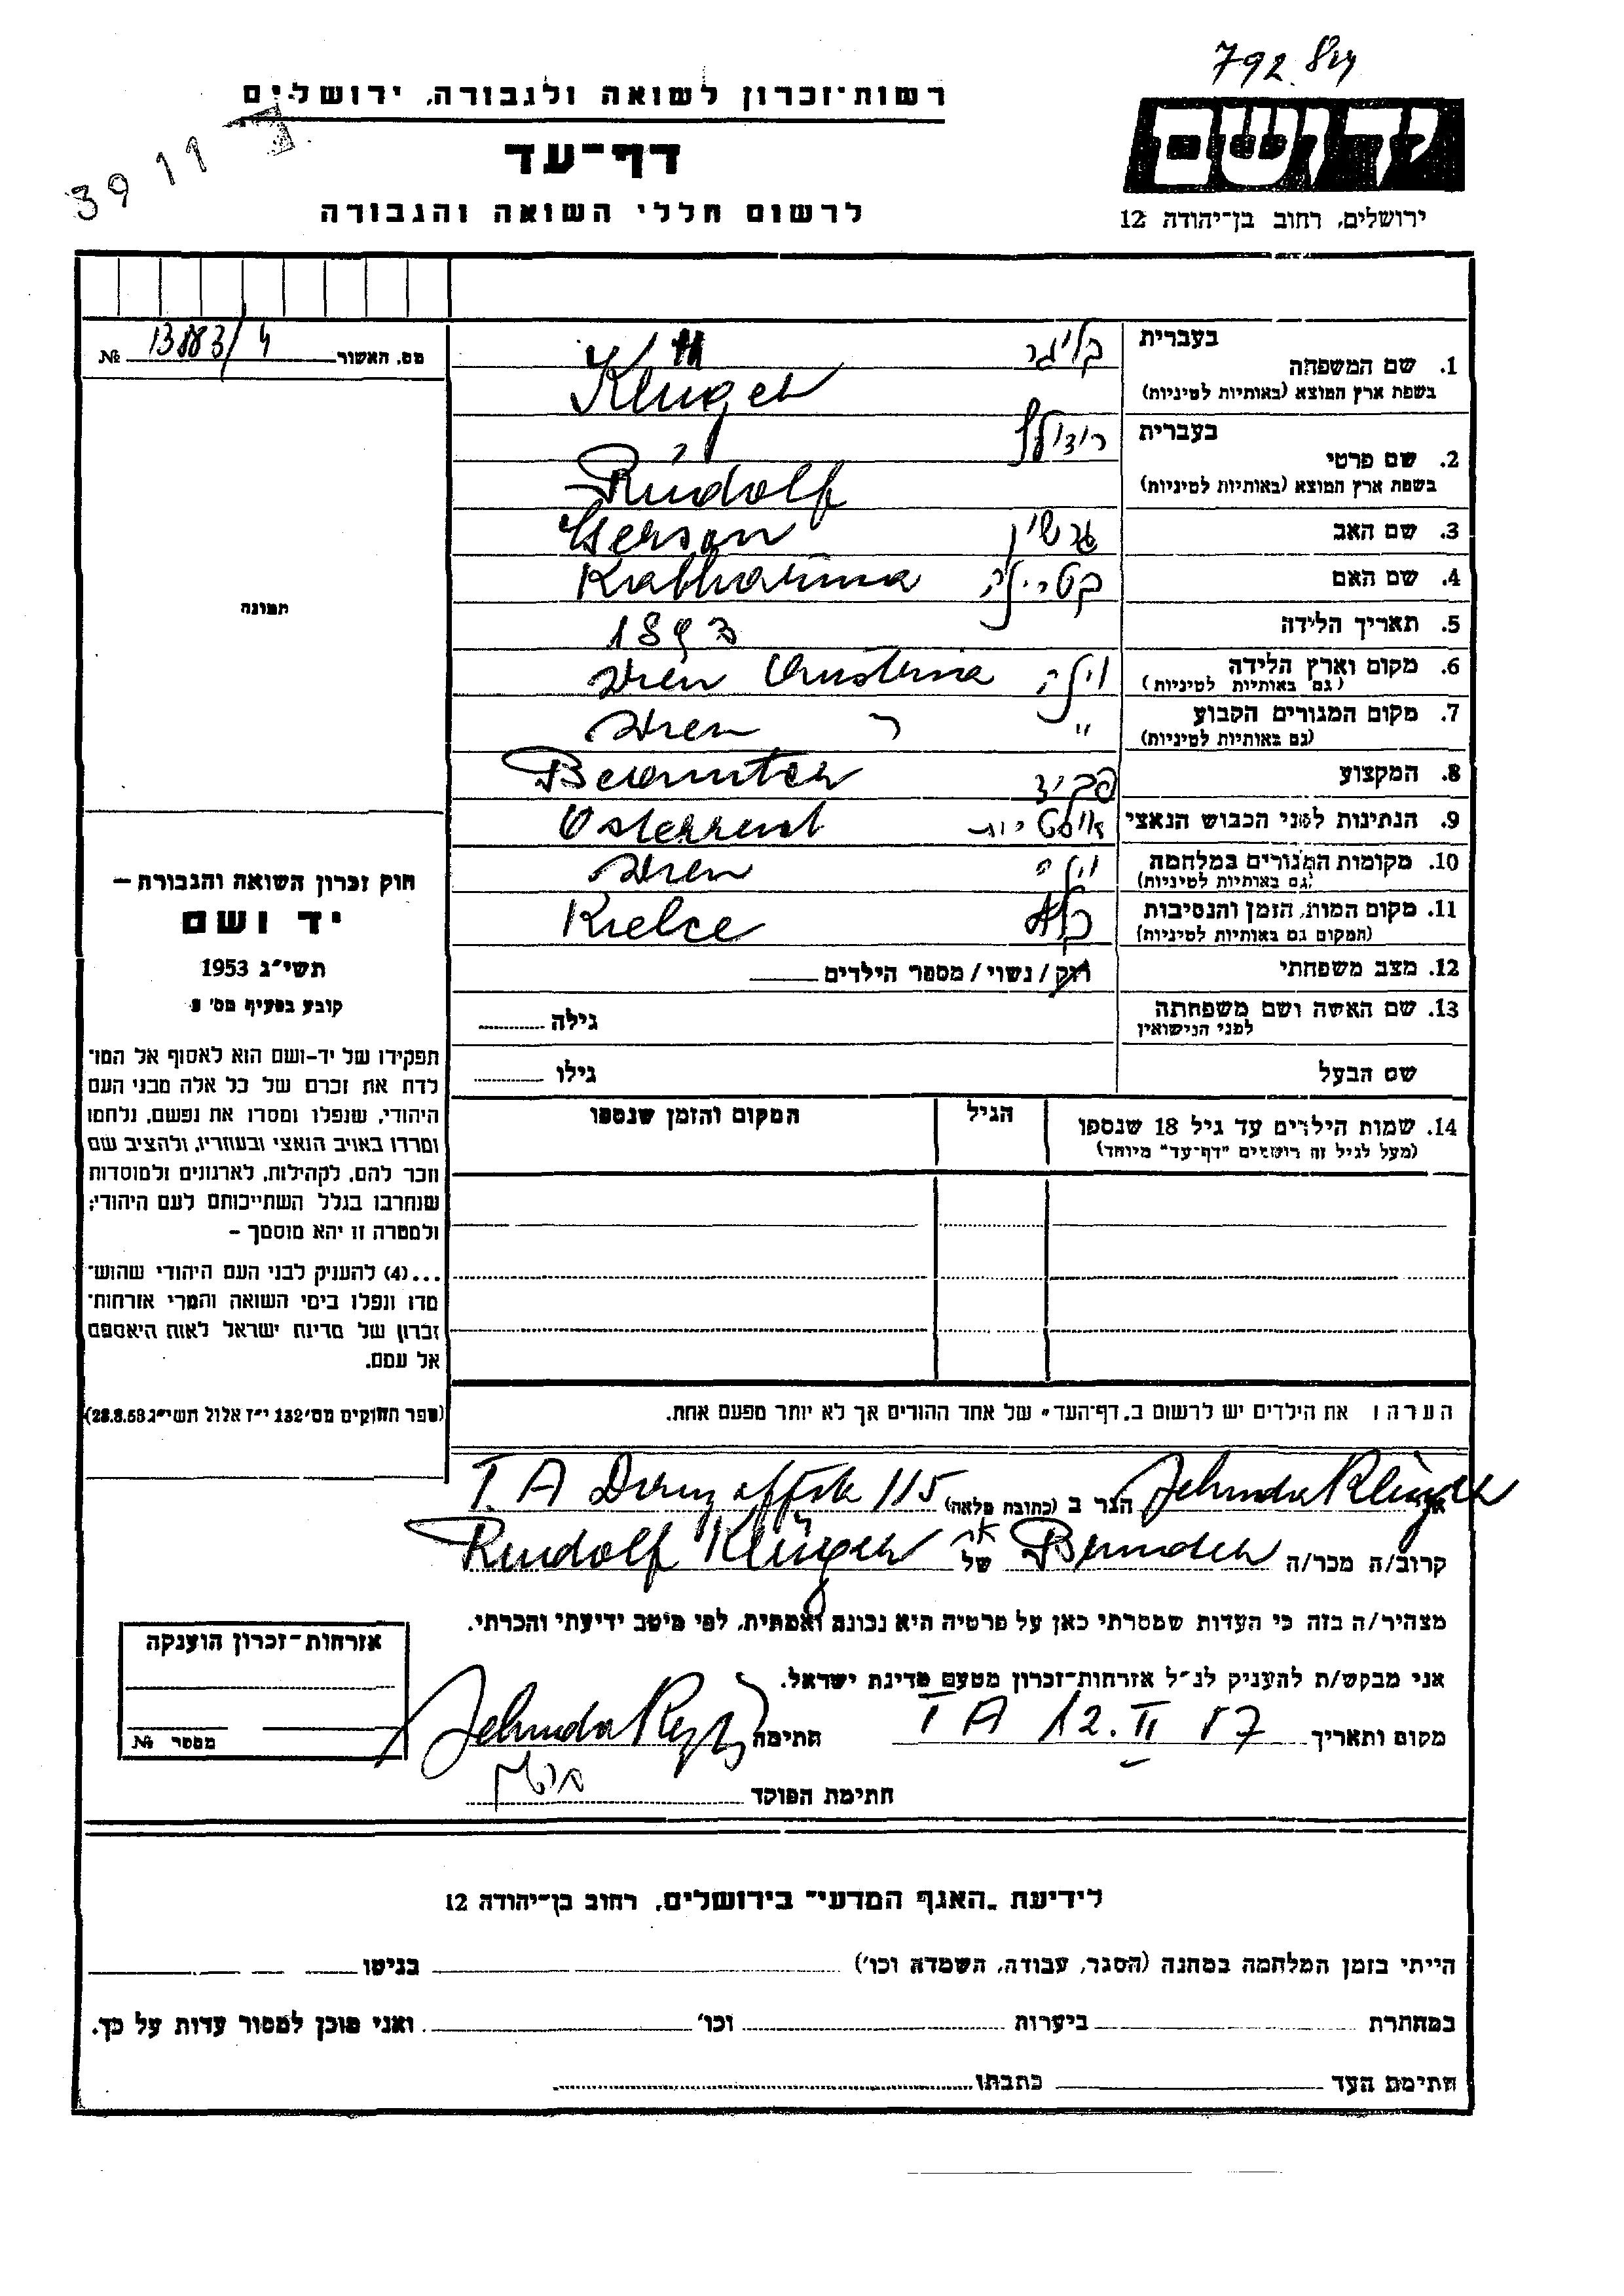 792
רשות־זכרון לשואה ולגבורה, ירושלים
דף־עד
לרשום חללי השואה והגבורה
יד ושם
ירושלים, רחוב בן־יהודה 12
39 11
מס. האשור 13883/4 №
בעברית קליגר
1. שם המשפחה
בשפת ארץ המוצא (באותיות לטיניות) Klüger
בעברית רודולף
2. שם פרטי
בשפת ארץ המוצא (באותיות לטיניות) Rudolf
3. שם האב גרשון Gerson
4. שם האם קטרינה Katharina
5. תאריך הלידה 1893
6. מקום וארץ הלידה וינה Wien Austria
(גם באותיות לטיניות)
7. מקום המגורים הקבוע " Wien
(גם באותיות לטיניות)
8. המקצוע פקיד Beamter
9. הנתינות לפני הכבוש הנאצי
10. מקומות המגורים במלחמה וינה Wien
(גם באותיות לטיניות)
11. מקום המות, הזמן והנסיבות Kielce
(המקום גם באותיות לטיניות)
12. מצב משפחתי רוק / נשוי / מספר הילדים
13. שם האשה ושם משפחתה
לפני הנישואין
גילה
שם הבעל גילו
14. שמות הילדים עד גיל 18 שנספו
(מעל לגיל זה רושמים "דף־עד" מיוחד)
הגיל
המקום והזמן שנספו
תמונה
חוק זכרון השואה והגבורת –
יד ושם
תשי"ג 1953
קובע בסעיף מס'
תפקידו של יד-ושם הוא לאסוף אל המו־
לדת את זכרם של כל אלה מבני העם
היהודי, שנפלו ומסרו את נפשם, נלחמו
ומרדו באויב הנאצי ובעוזריו, ולהציב שם
וזכר להם, לקהילות, לארגונים ולמוסדות
שנחרבו בגלל השתייכותם לעם היהודי;
ולמטרה זו יהא מוסמך –
...(4) להעניק לבני העם היהודי שהוש־
מדו ונפלו בימי השואה והמרי אזרחות־
זכרון של מדינת ישראל לאות היאספם
אל עמם.
(ספר החוקים מס' 132 י"ז אלול תשי"ג 28.8.53)
הערה: את הילדים יש לרשום ב„דף־העד" של אחד ההורים אך לא יותר מפעם אחת.
אני Jehuda Klüger הגר ב (כתובת מלאה) T. A 115
קרוב/ה מכר/ה Bruder של Rudolf Klüger
מצהיר/ה בזה כי העדות שמסרתי כאן על פרטיה היא נכונה ואמתית, לפי מיטב ידיעתי והכרתי.
אני מבקש/ת להעניק לנ"ל אזרחות־זכרון מטעם מדינת ישראל.
מקום ותאריך T A 12. II 57 חתימה Jehuda
חתימת הפוקד
אזרחות־זכרון הוענקה
מספר №
לידיעת „האגף המדעי" בירושלים, רחוב בן־יהודה 12
הייתי בזמן המלחמה במחנה (הסגר, עבודה, השמדה וכו') בגיטו
במחתרת ביערות וכו' ואני מוכן למסור עדות על כך.
חתימת העד כתבתו